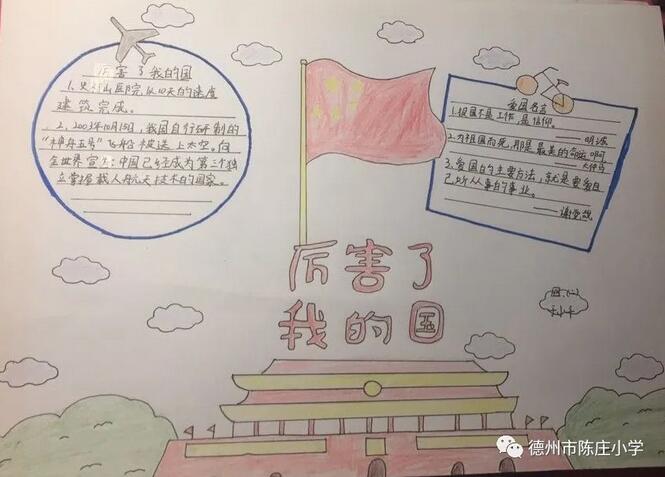 厉害了我的国
1、火神山医院,以10天的速度
建筑完成。
2、2003年10月15日,我国自行研制的
“神舟五号”飞船被送上太空。向
全世界宣告:中国已经成为第三个独
立掌握载人航天技术的国家。
爱国名言
1.祖国不是工作,是信仰。
2.为祖国而死,那是最美的命运啊!
大仲马
3.爱国的主要方法,就是要爱自
己所从事的事业。
谢觉哉
厉害了
我的国
德州市陈庄小学